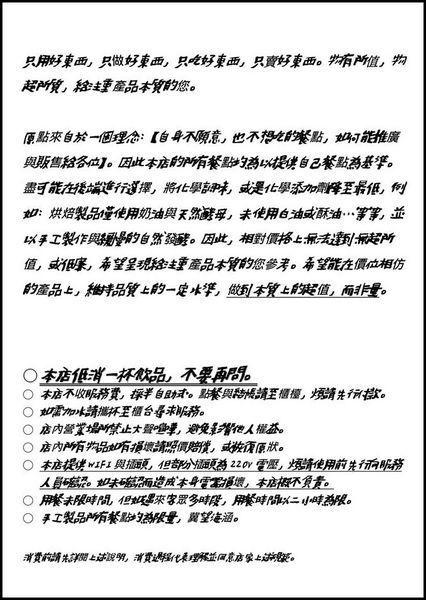 只用好東西，只做好東西，只吃好東西，只賣好東西。物有所值，物
超所質，給注重產品本質的您。
原點來自於一個理念:【自身不願意，也不想吃的餐點，如何能推廣
與販售給各位】。因此本店的所有餐點均為以提供自己餐點為基準。
盡可能在後端進行選擇，將化學調味，或是化學添加劑降至最低，例
如：烘焙製品僅使用奶油與天然酵母，未使用白油或酥油…等等，並
以手工製作與緩慢的自然發酵。因此，相對價格上無法達到無超所
值，或低廉，希望呈現給注重產品本質的您參考。希望能在價位相仿
的產品上，維持品質上的一定水準，做到本質上的超值，而非量。
○ 本店低消一杯飲品，不要再問。
○ 本店不收服務費，採半自助式。點餐與結帳請至櫃檯，煩請先行付款。
○ 如需加水請攜杯至櫃台尋求服務。
○ 店內營業場所禁止大聲喧嘩，避免影響他人權益。
○ 店內所有物品如有損壞請照價賠償，或恢復原狀。
○ 本店提供WIFI與插頭，但部分插頭為220V電壓，煩請使用前先行向服務
人員確認。如未確認而造成本身電器損壞，本店概不負責。
○ 用餐未限時間，但如遇來客眾多時段，用餐時間以二小時為限。
○ 手工製品所有餐點均為限量，冀望海涵。
消費前請先詳閱上述說明，消費過程代表理解並同意店家上述規範。